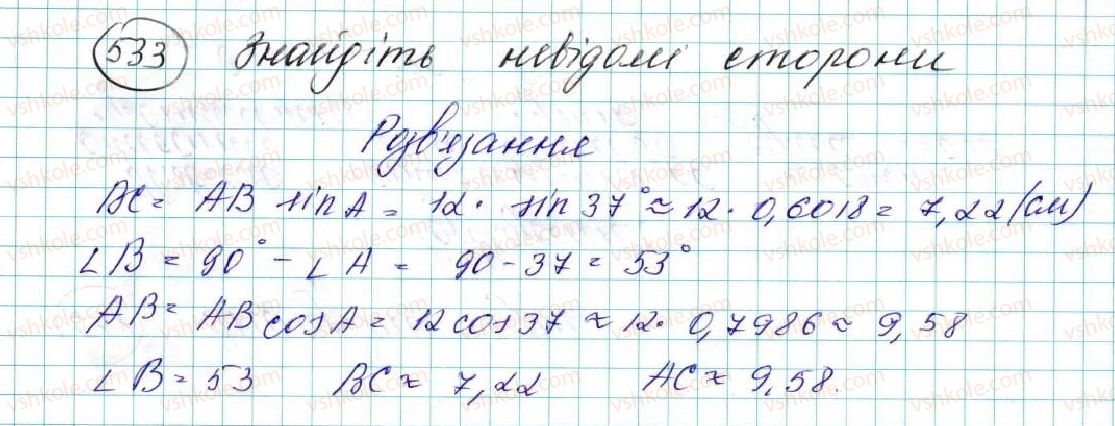 533 Знайдіть невідомі сторони
Розв'язання
BC = AB sin A = 12 · sin 37° ≈ 12 · 0,6018 = 7,22 (см)
∠B = 90° - ∠A = 90 - 37 = 53°
AB = AB cos A = 12 cos 37 ≈ 12 · 0,7986 ≈ 9,58
∠B = 53 BC ≈ 7,22 AC ≈ 9,58.